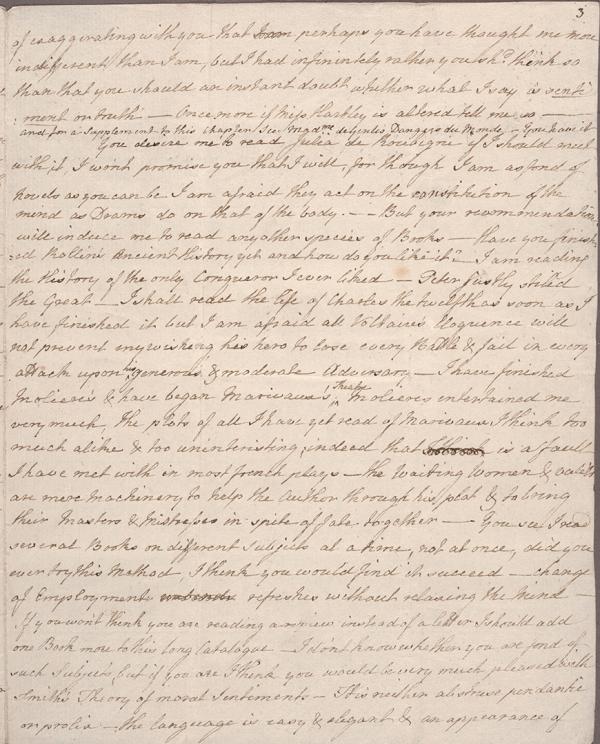 3
of exaggerating with you that perhaps you have thought me more
indifferent than I am, but I had infinitely rather you shd. think so
than that you should an instant doubt whether what I say is senti
ment or truth — Once more if Miss Hartley is altered tell me so —
and for a Supplement to this Chapter See Madme. de Genlis Dangers du Monde, — You have it
You desire me to read Julia de Roubigne if I should meet
with it, I wont promise you that I will, for though I am as fond of
Novels as you can be I am afraid they act on the constitution of the
mind as Drams do on that of the body. — — But your recommendation
will induce me to read any other species of Books — Have you finish
=ed Rollin's Ancient History yet and how do you like it? — I am reading
the History of the only Conqueror I ever liked — Peter justly stiled
the Great — I shall read the life of Charles the twelfth as soon as I
have finished it but I am afraid all Voltaire's Eloquence will
not prevent my wishing his hero to lose every Battle & fail in every
attack upon his generous & moderate Adversary — I have finished
Molieres & have began Marivaux's Theatre, Molieres entertained me
very much, the plots of all I have yet read of Marivaux I think too
much alike & too uninteresting; indeed that is a fault
I have met with in most french plays — the Waiting Women & valets
are mere Machinery to help the Author through his plot & to bring
their Masters & Mistresses in spite of fate together — You see I read
several Books on different subjects at a time, not at once, did you
ever try this Method, I think you would find it succeed — change
of Employments refreshes without relaxing the Mind —
If you wont think you are reading a review instead of a letter I should add
one Book more to this long Catalogue — I don't know whether you are fond of
such Subjects but if you are I think you would be very much pleased with
Smith's Theory of moral Sentiments — It is neither abstruse pendantic
or prolix — the language is easy & elegant & an appearance of